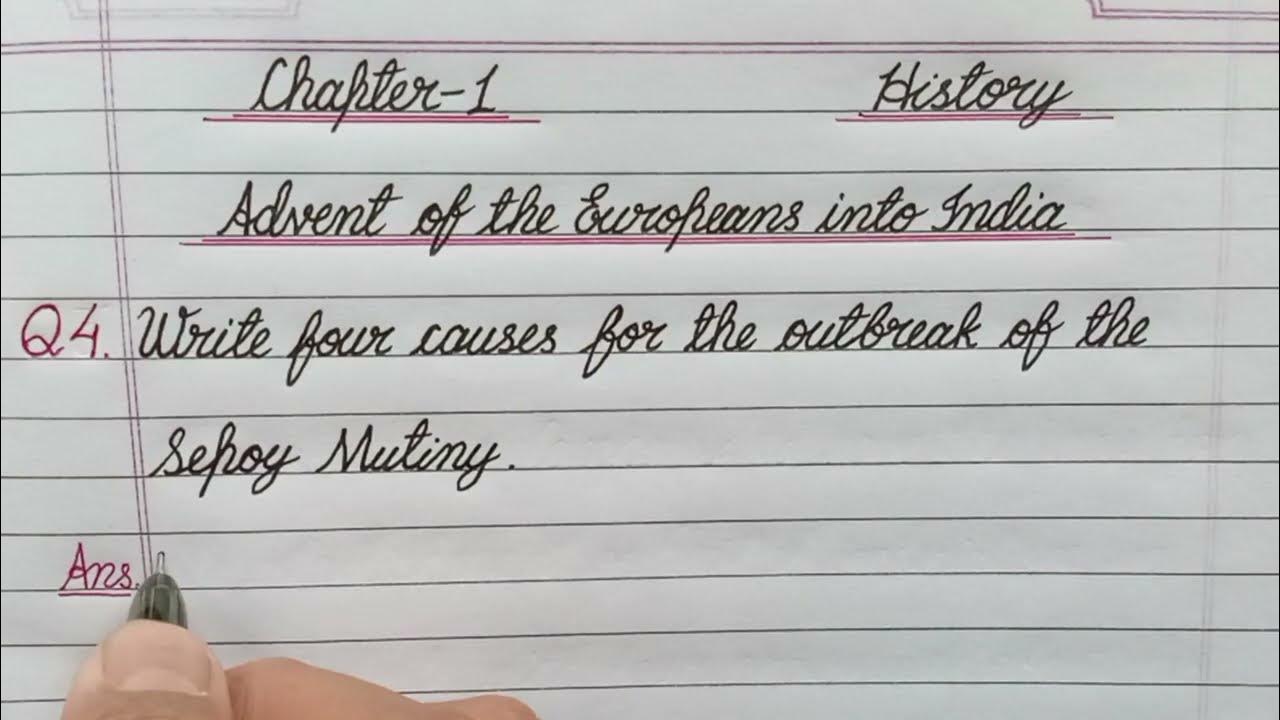 Chapter-1 History
Advent of the Europeans into India
Q4. Write four causes for the outbreak of the
Sepoy Mutiny.
Ans.